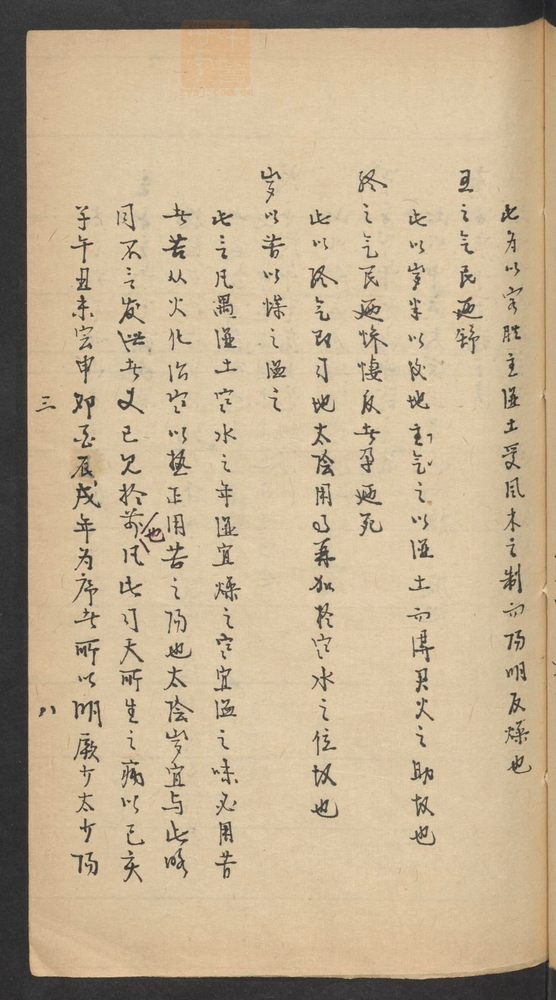 此为以客胜主湿土受风木之制而阳明反燥也
五之气民廼舒
此以岁半以后地主气之以湿土而得君火之助故也
终之气民廼惨悽反者孕廼死
此以终气即司地太阴用事再加於寒水之位故也
岁以苦以燥之温之
此言凡遇湿土寒水之年湿宜燥之寒宜温之味必用苦
者苦从火化治寒以热正用苦之阳也太阴岁宜与此略
同不言发泄者义已见於前也凡此司天所生之病以巳亥
子午丑未寅申卯酉辰戌年为序者所以明厥少太少阳
三 八